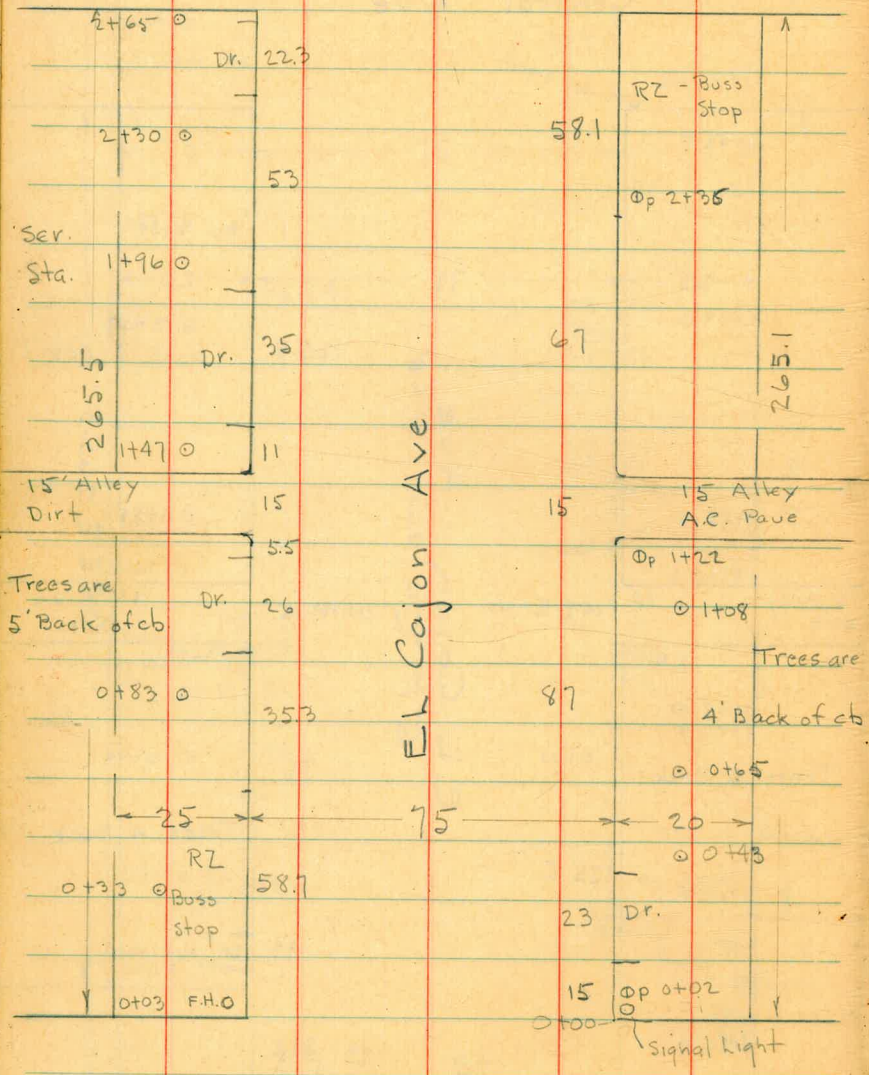 2+65
Dr.
22.3
2+30
53
Ser.
Sta.
1+96
265.5
Dr.
35
1+47
11
15' Alley
Dirt
15
5.5
Trees are
5' Back of cb
Dr.
26
0+83
35.3
25
RZ
Buss
stop
0+33
58.1
0+03
F.H.
EL Cajon Ave
75
RZ - Buss
Stop
58.1
p 2+35
67
265.1
15
15 Alley
A.C. Pave
p 1+22
1+08
Trees are
4' Back of cb
87
0+65
20
0+43
23
Dr.
15
p 0+02
0+00
Signal Light